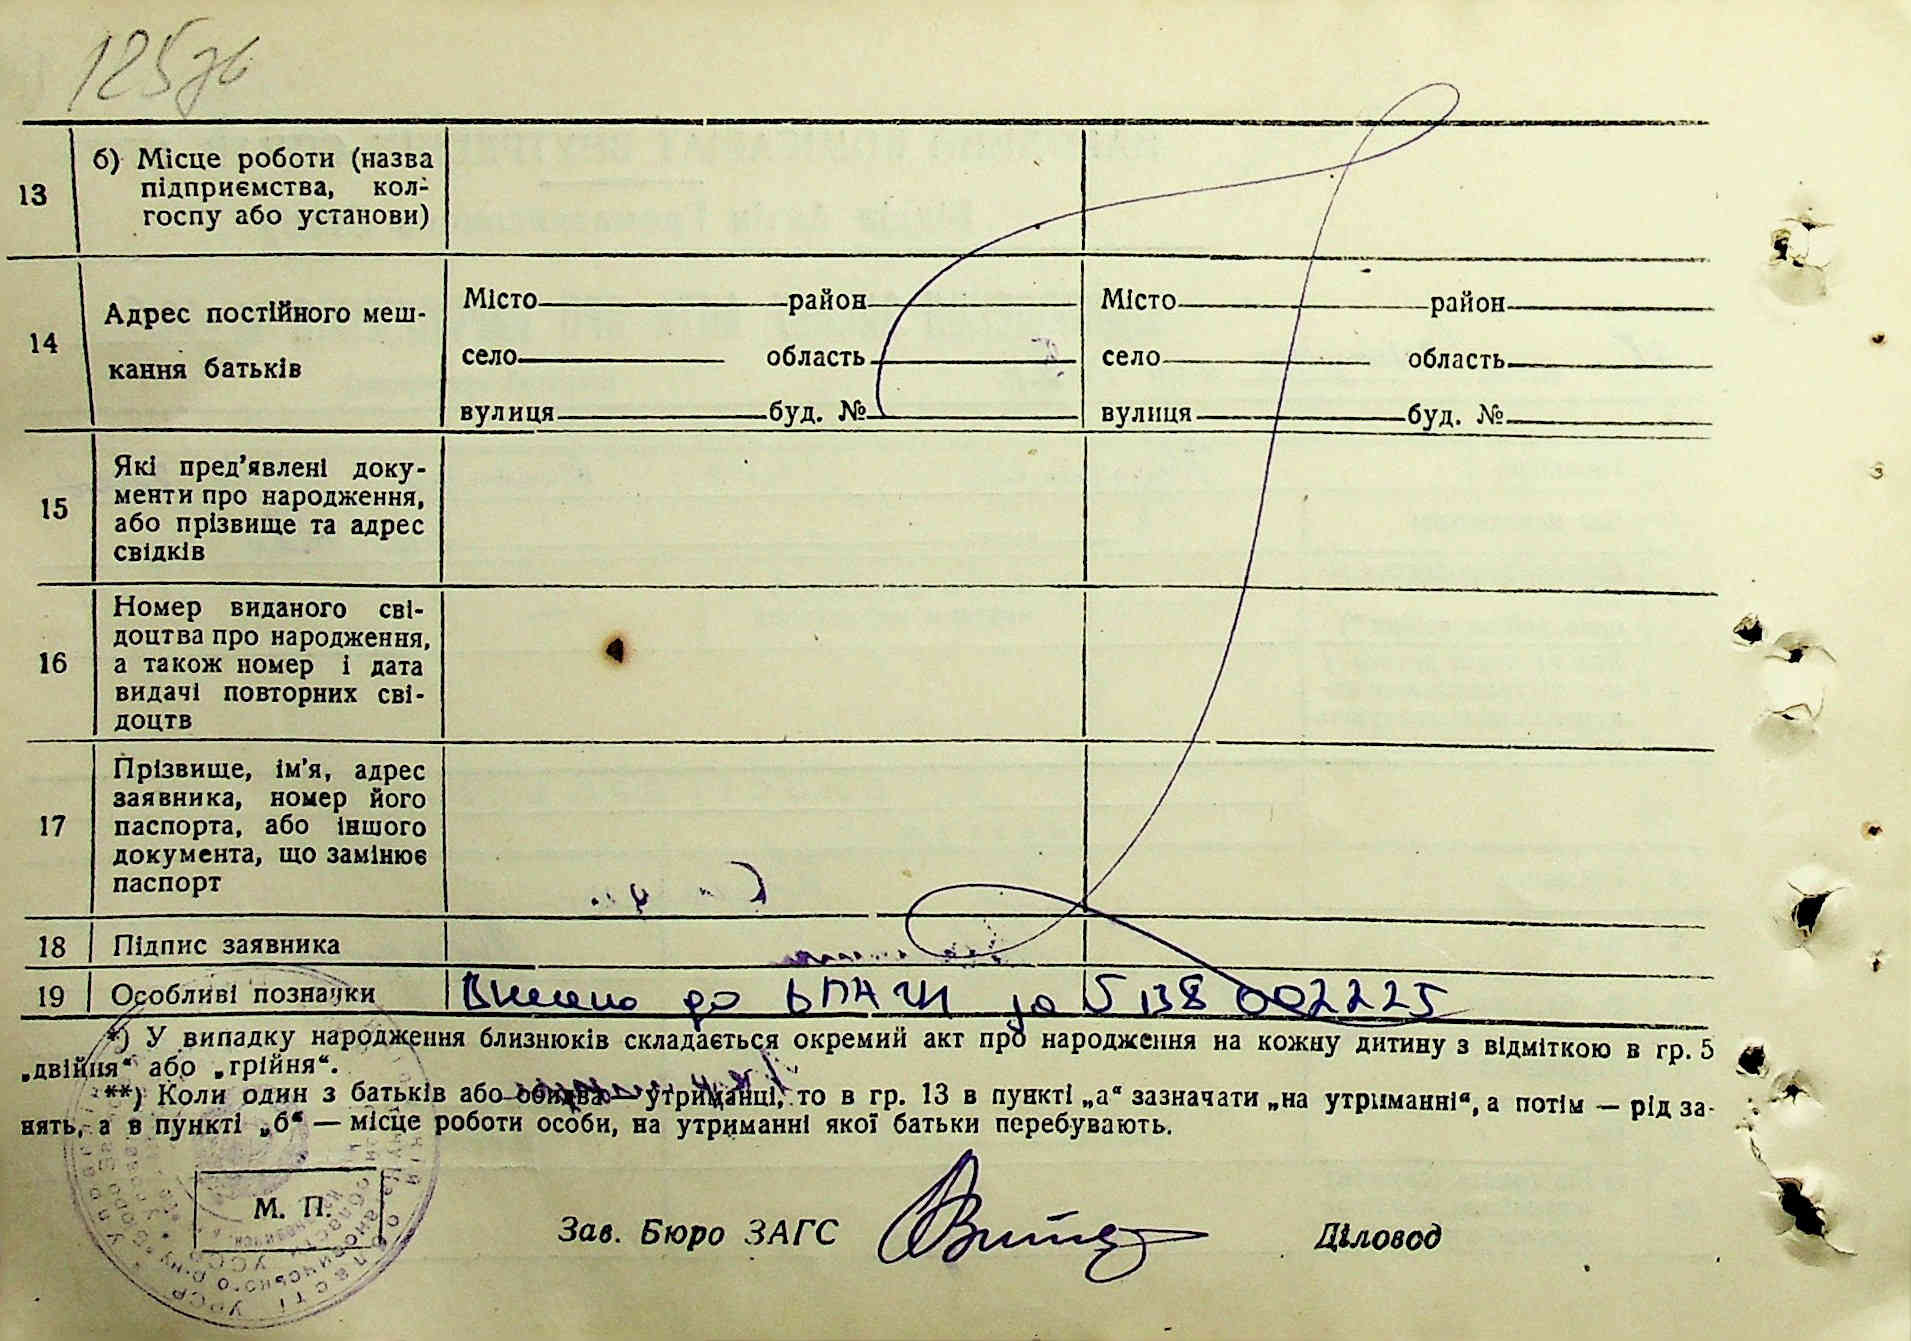 125зв
13
б) Місце роботи (назва
підприємства, кол-
госпу або установи)
14
Адрес постійного меш-
кання батьків
Місто район
село область
вулиця буд. №
Місто район
село область
вулиця буд. №
15
Які пред'явлені доку-
менти про народження,
або прізвище та адрес
свідків
16
Номер виданого сві-
доцтва про народження,
а також номер і дата
видачі повторних сві-
доцтв
17
Прізвище, ім'я, адрес
заявника, номер його
паспорта, або іншого
документа, що замінює
паспорт
18 Підпис заявника
19 Особливі позначки
Внесено до за 5138 002225
*) У випадку народження близнюків складається окремий акт про народження на кожну дитину з відміткою в гр. 5
„двійня“ або „грійня“.
**) Коли один з батьків або обидва утриманці, то в гр. 13 в пункті „а“ зазначати „на утриманні“, а потім — рід за-
нять, а в пункті „б“ — місце роботи особи, на утриманні якої батьки перебувають.
М. П.
Зав. Бюро ЗАГС Діловод